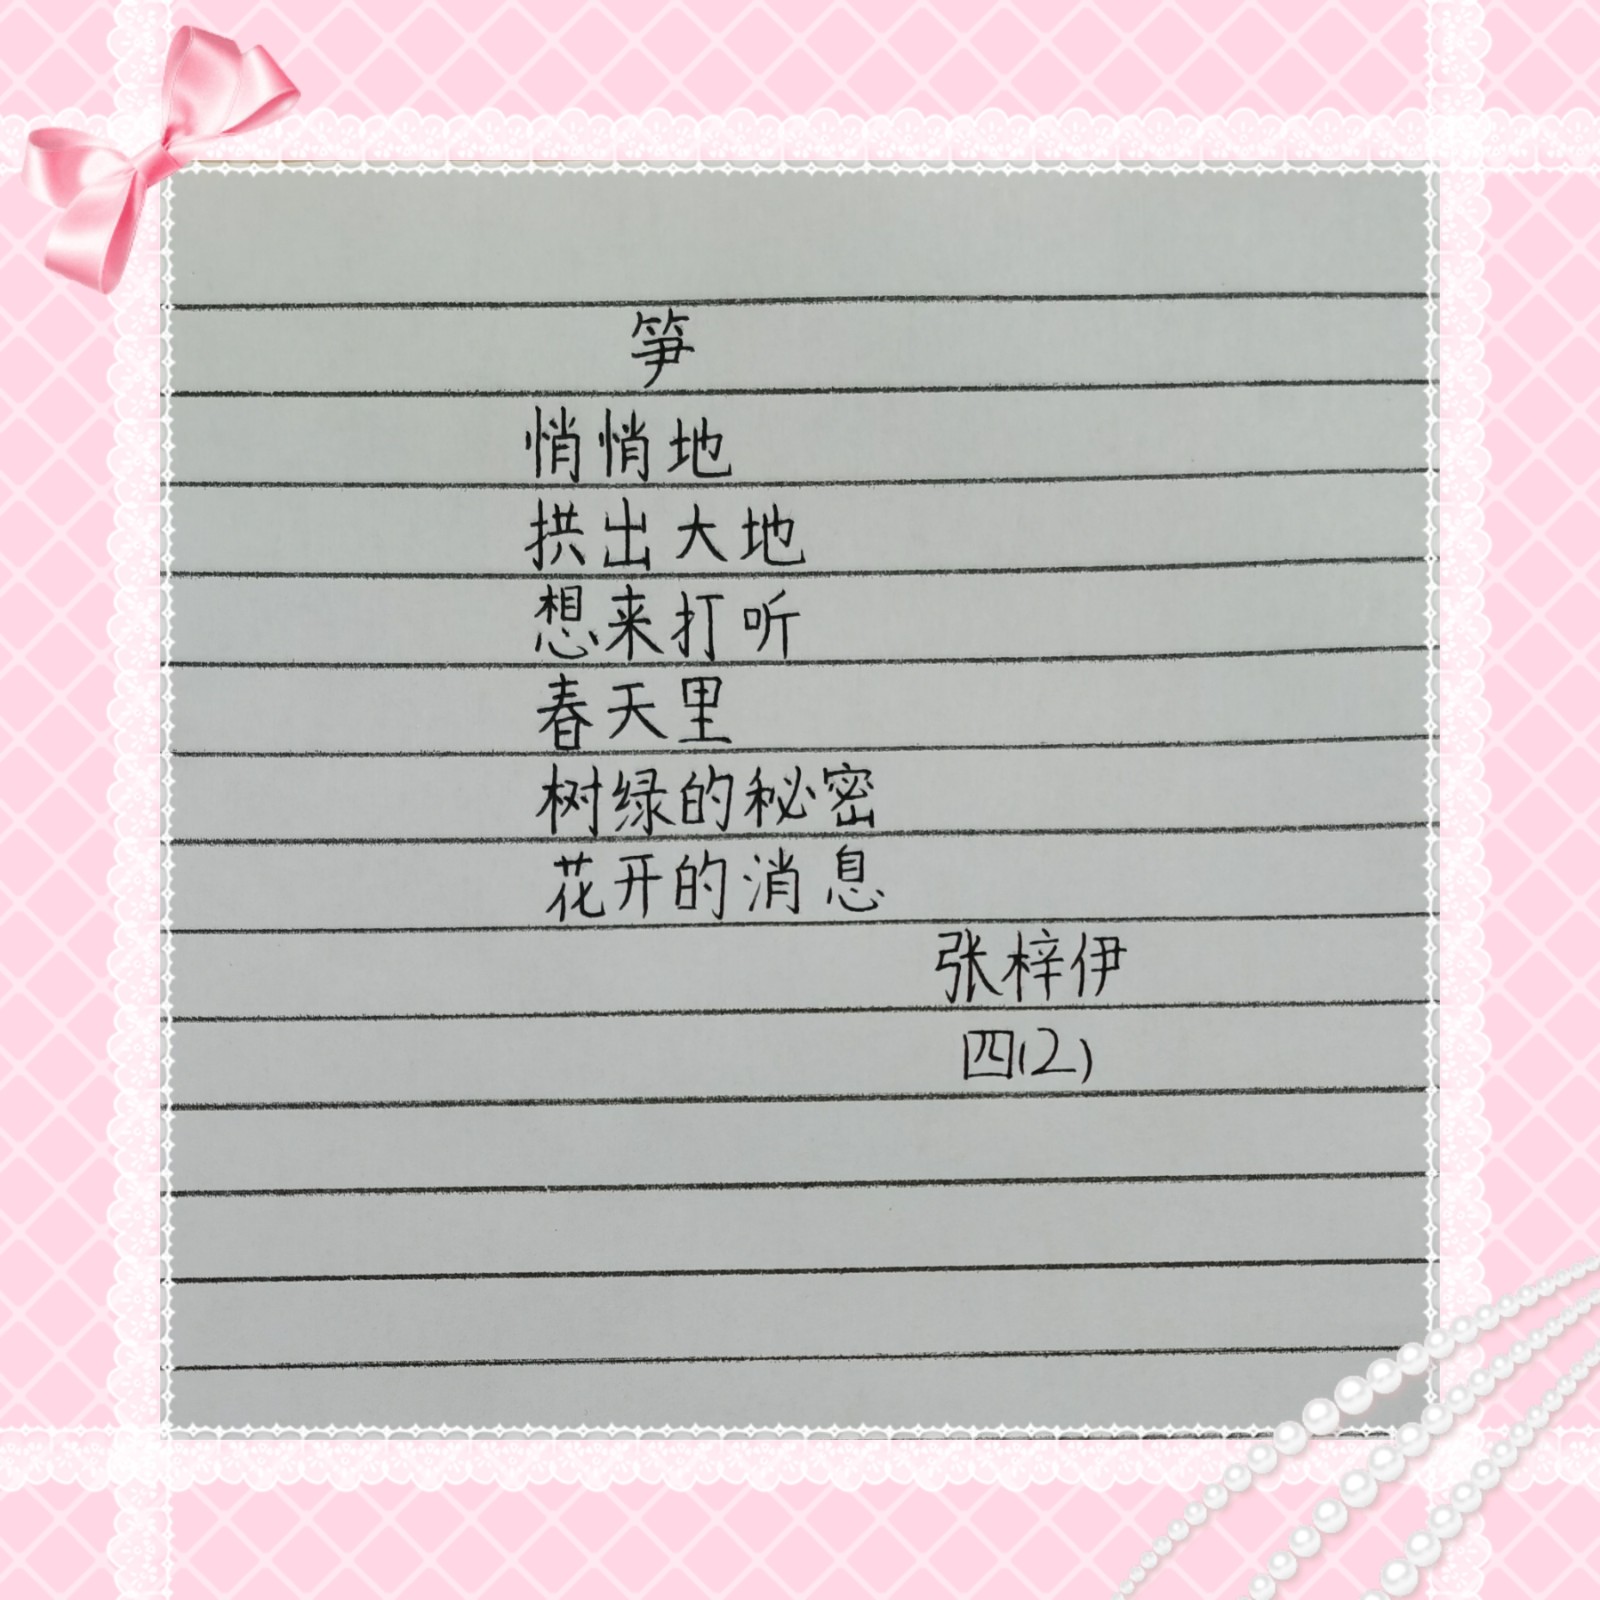 笋
悄悄地
拱出大地
想来打听
春天里
树绿的秘密
花开的消息
张梓伊
四(2)